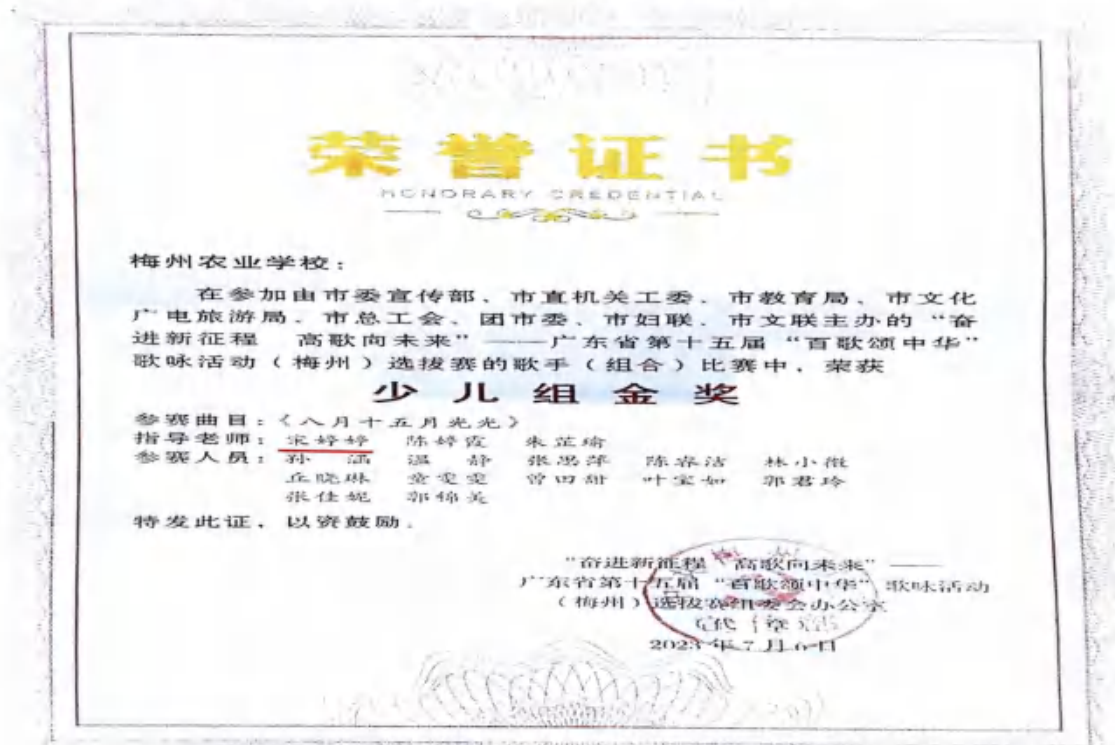 荣誉证书
HONORARY CREDENTIAL
梅州农业学校：
在参加由市委宣传部、市直机关工委、市教育局、市文化
广电旅游局、市总工会、团市委、市妇联、市文联主办的“奋
进新征程 高歌向未来”——广东省第十五届“百歌颂中华”
歌咏活动（梅州）选拔赛的歌手（组合）比赛中，荣获
少儿组金奖
参赛曲目：《八月十五月光光》
指导老师：宋婷婷 陈婷霞 朱芷瑜
参赛人员：孙涵 温静 陈春洁 林小微
丘晓琳 童雯雯 曾田甜 叶宝如 郭君玲
张佳妮 郭锦美
特发此证，以资鼓励。
“奋进新征程 高歌向未来”——
广东省第十五届“百歌颂中华”歌咏活动
（梅州）选拔赛组委会办公室
（代章）
2023年7月6日